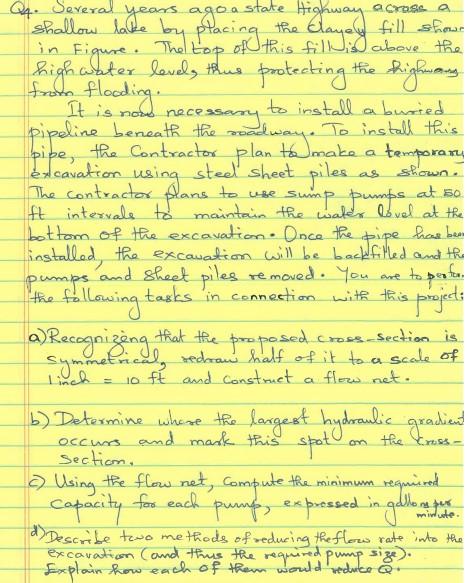 Q4. Several years ago a state Highway across a
shallow lake by placing the clayey fill shown
in Figure. The top of this fill is above the
high water level, thus protecting the highway
from flooding.
It is now necessary to install a buried
pipeline beneath the roadway. To install this
pipe, the Contractor plan to make a temporary
excavation using steel sheet piles as shown.
The contractor plans to use sump pumps at 50
ft intervals to maintain the water level at the
bottom of the excavation. Once the pipe has been
installed, the excavation will be backfilled and the
pumps and sheet piles removed. You are to perfor
the following tasks in connection with this project:
a) Recognizing that the proposed cross-section is
symmetrical, redraw half of it to a scale of
1 inch = 10 ft and construct a flow net.
b) Determine where the largest hydraulic gradient
occurs and mark this spot on the cross-
section.
c) Using the flow net, compute the minimum required
capacity for each pump, expressed in gallons per
minute.
d) Describe two methods of reducing the flow rate into the
excavation (and thus the required pump size).
Explain how each of them would reduce Q.